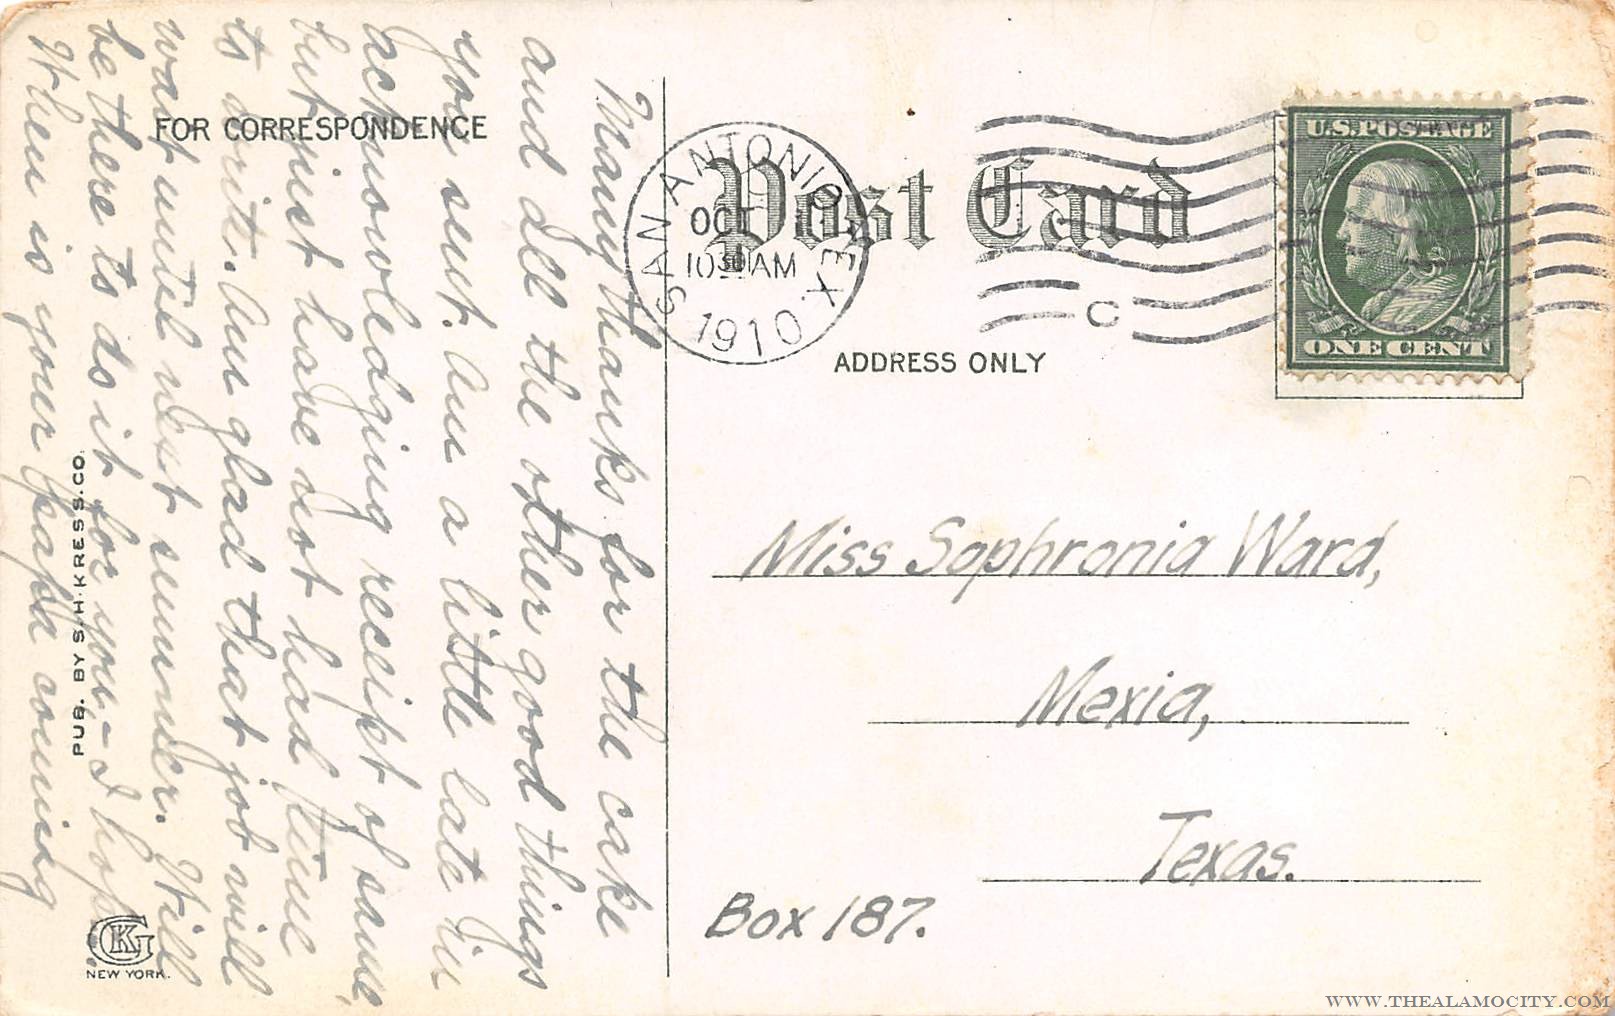 Many thanks for the cake
and all the other good things
you sent. Am a little late in
acknowledging receipt of same,
but just have not had time
to write. Am glad that job will
wait until next summer. Will
be there to do it for you, - I hope.
When is your papa coming
FOR CORRESPONDENCE
PUB. BY S.H. KRESS. CO.
NEW YORK.
Post Card
SAN ANTONIO, TEX.
OCT
1030AM
1910
C
U.S. POSTAGE
ONE CENT
ADDRESS ONLY
Miss Sophronia Ward,
Mexia,
Texas.
Box 187.
WWW.THEALAMOCITY.COM